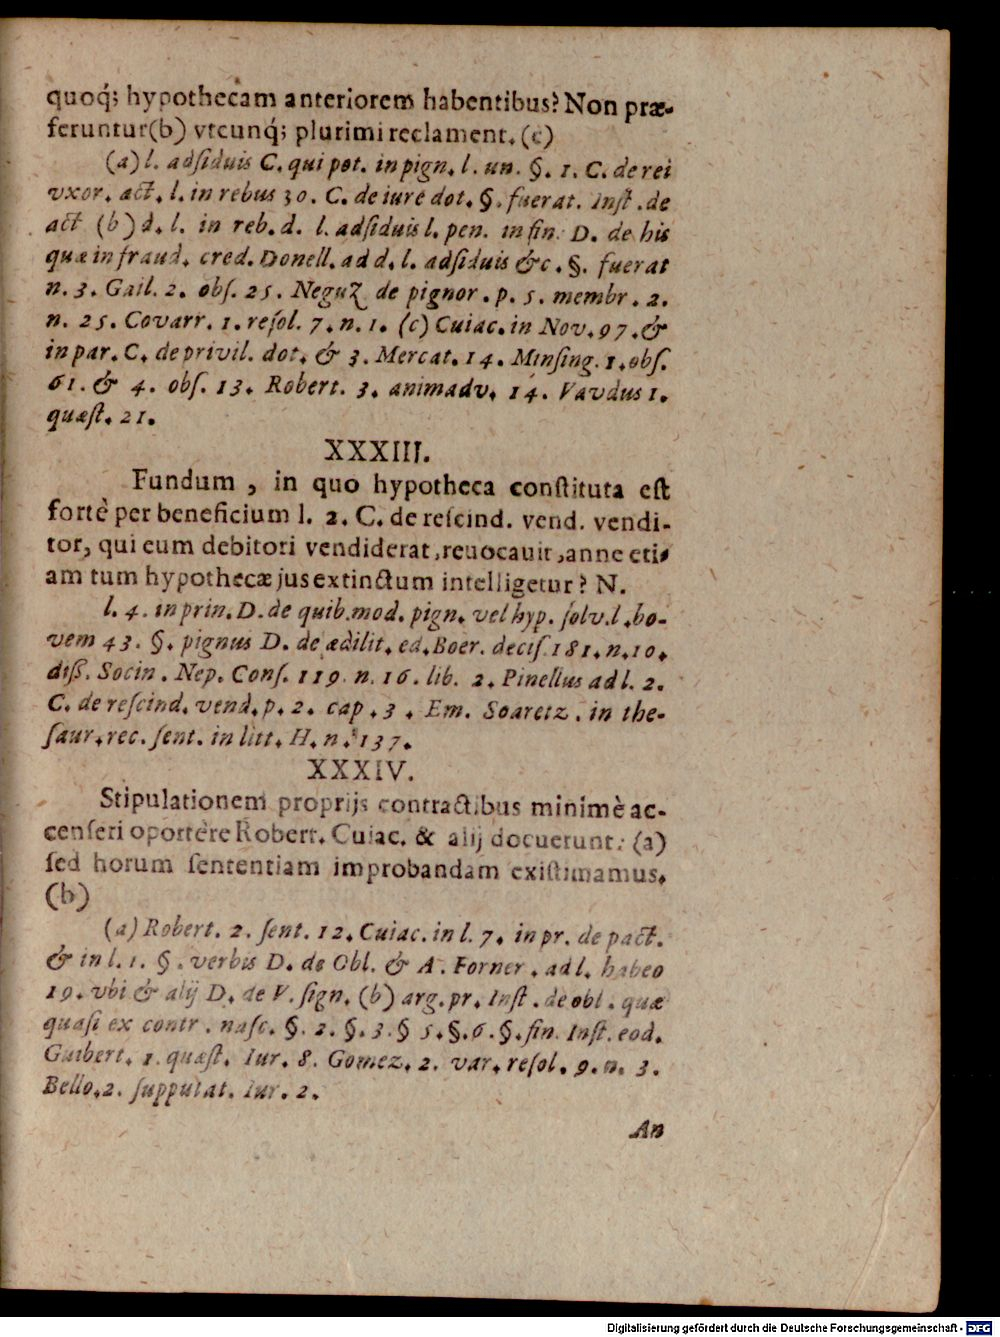 quoq́; hypothecam anteriorem habentibus? Non præ-
feruntur(b) vtcunq́; plurimi reclament. (c)
(a) l. adſiduis C. qui pot. in pign. l. un. §. 1. C. de rei
vxor. act. l. in rebus 30. C. de iure dot. §. fuerat. Inſt. de
act (b) d. l. in reb. d. l. adſiduis l. pen. in fin. D. de his
quæ in fraud. cred. Donell. ad d. l. adſiduis &c. §. fuerat
n. 3. Gail. 2. obſ. 25. Neguz de pignor. p. 5. membr. 2.
n. 25. Covarr. 1. reſol. 7. n. 1. (c) Cuiac. in Nov. 97. &
in par. C. de privil. dot. & 3. Mercat. 14. Minſing. 1. obſ.
61. & 4. obſ. 13. Robert. 3. animadv. 14. Vaudus 1.
quæſt. 21.
XXXIII.
Fundum , in quo hypotheca conſtituta eſt
fortè per beneficium l. 2. C. de reſcind. vend. vendi-
tor, qui eum debitori vendiderat, reuocauit, anne eti-
am tum hypothecæ jus extinctum intelligetur? N.
l. 4. in prin. D. de quib. mod. pign. vel hyp. ſolv. l. bo-
vem 43. §. pignus D. de ædilit. ed. Boer. deciſ. 181. n. 10.
diſſ. Socin. Nep. Conſ. 119. n. 16. lib. 2. Pinellus ad l. 2.
C. de reſcind. vend. p. 2. cap. 3. Em. Soaretz. in the-
ſaur. rec. ſent. in litt. H. n. 137.
XXXIV.
Stipulationem proprijs contractibus minimè ac-
cenſeri oportere Robert. Cuiac. & alij docuerunt: (a)
ſed horum ſententiam improbandam exiſtimamus.
(b)
(a) Robert. 2. ſent. 12. Cuiac. in l. 7. in pr. de pact.
& in l. 1. §. verbis D. de Obl. & A. Forner. ad l. habeo
19. vbi & alij D. de V. ſign. (b) arg. pr. Inſt. de obl. quæ
quaſi ex contr. naſc. §. 2. §. 3. § 5. §. 6. §. fin. Inſt. eod.
Guibert. 1. quæſt. Iur. 8. Gomez. 2. var. reſol. 9. n. 3.
Bello. 2. ſupputat. Iur. 2.
An
Digitalisierung gefördert durch die Deutsche Forschungsgemeinschaft - DFG